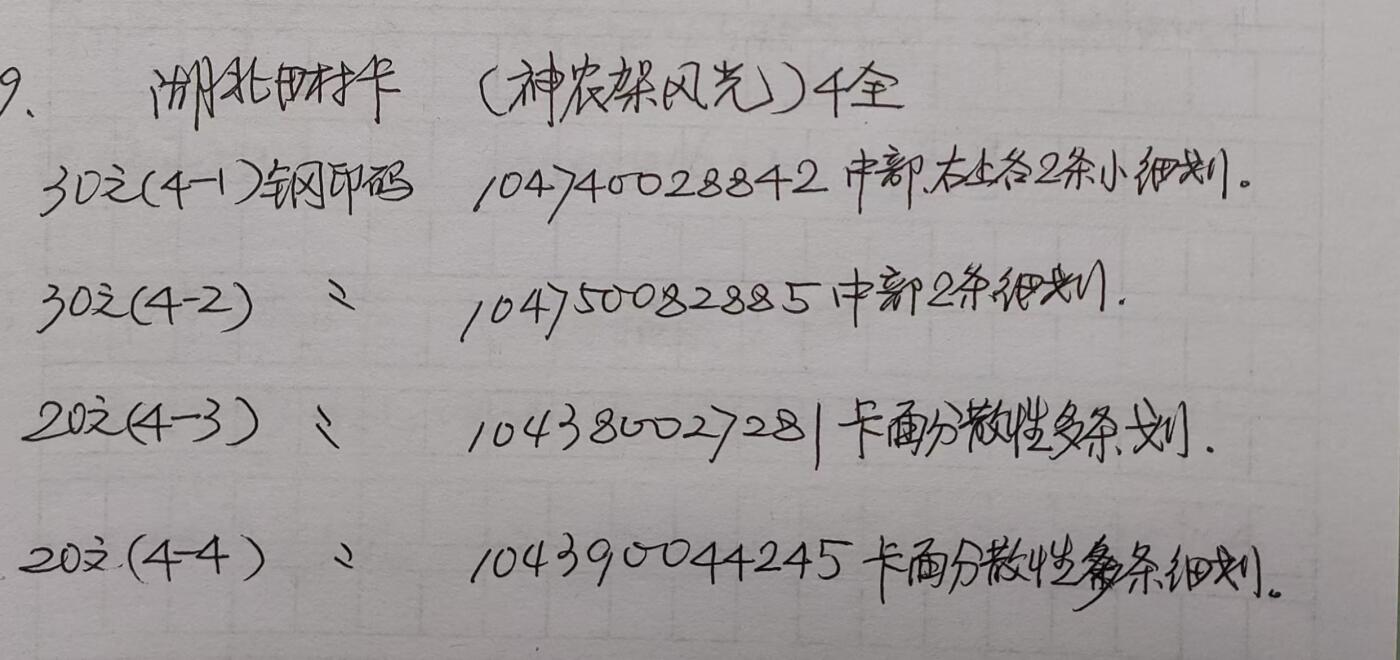 9. 湖北田村卡 (神农架风光)4全
30元(4-1)钢印码 104740028842中部、右上各2条小细划。
30元(4-2) 〃 104750082885中部2条细划.
20元(4-3) 〃 104380027281卡面分散性多条划.
20元(4-4) 〃 104390044245卡面分散性多条细划。